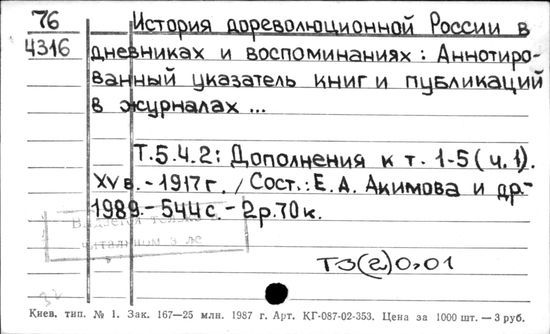 76
4316
История дореволюционной России в
дневниках и воспоминаниях: Аннотиро-
ванный указатель книг и публикаций
в журналах ...
Т.5.Ч.2: Дополнения к т. 1-5 (ч.1).
XV в. - 1917 г. / Сост.: Е. А. Акимова и др. -
1989. - 544 с. - 2р.70к.
Выдается только
читальном з ле
Т3(2)0,01
Киев, тип. № 1. Зак. 167—25 млн. 1987 г. Арт. КГ-087-02-353. Цена за 1000 шт. — 3 руб.